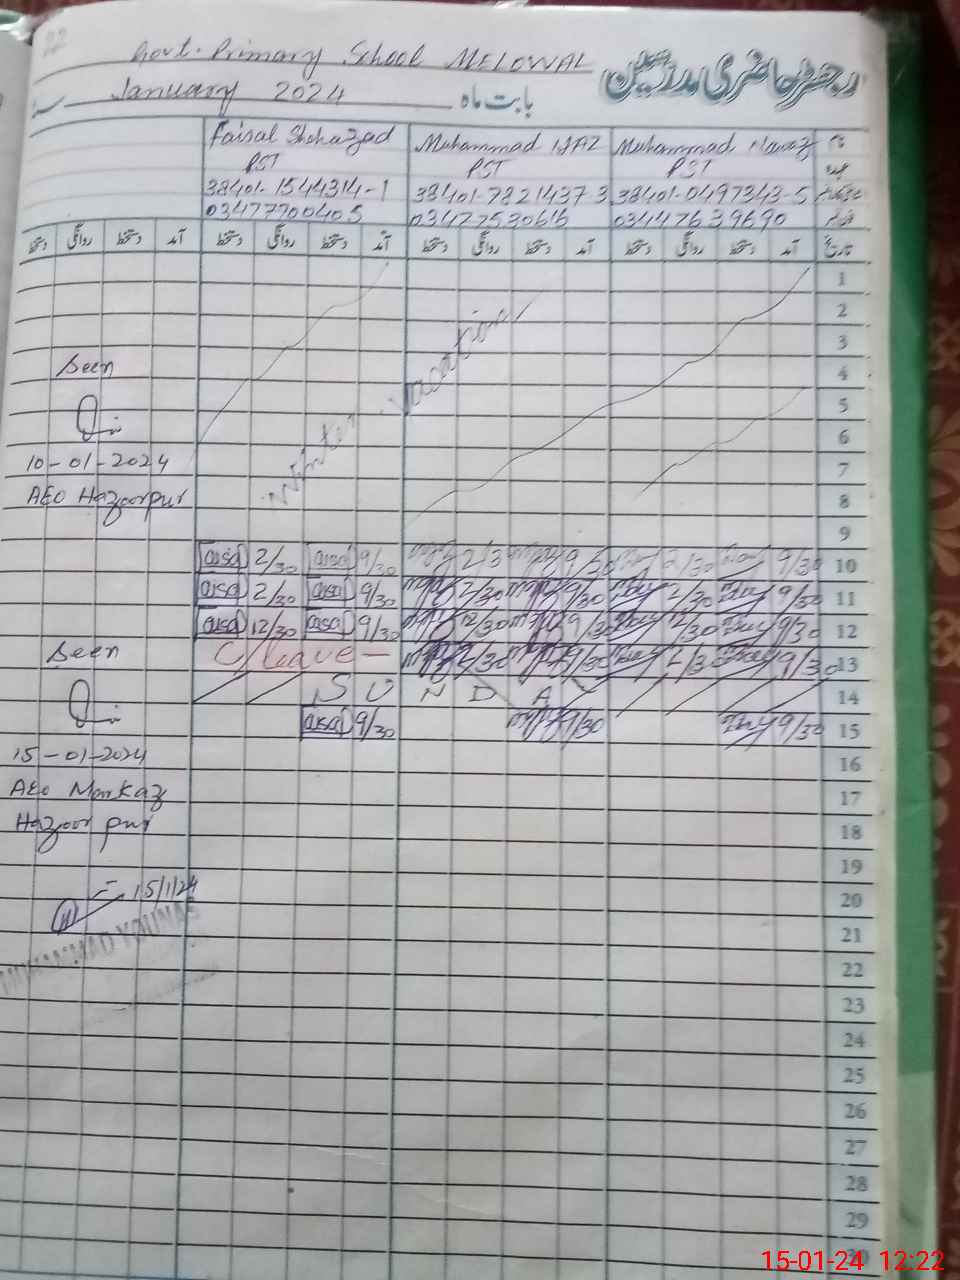 22
Govt. Primary School MELOWAL
رجسٹر حاضری مدرسین
January 2024 بابت ماہ
Faisal Shehazad Muhammad IJAZ Muhammad Nawaz نام
PST PST PST عہدہ
38401-1544314-1 38401-7821437-3 38401-0497343-5
03477700405 03447639690
دستخط روانگی دستخط آمد دستخط روانگی دستخط آمد دستخط روانگی دستخط آمد دستخط روانگی دستخط آمد تاریخ
1
2
3
Seen 4
5
Winter vacation
6
10-01-2024 7
AEO Hazoorpur 8
9
2/30 9/30 2/30 9/30 2/30 9/30 10
2/30 9/30 2/30 9/30 2/30 9/30 11
12/30 9/30 12/30 9/30 12/30 9/30 12
Seen C/leave - 2/30 9/30 2/30 9/30 13
S U N D A 14
9/30 9/30 9/30 15
15-01-2024 16
AEO Markaz 17
Hazoor pur 18
19
15/1/24 20
MUHAMMAD YOUNAS 21
22
23
24
25
26
27
28
29
30
15-01-24 12:22